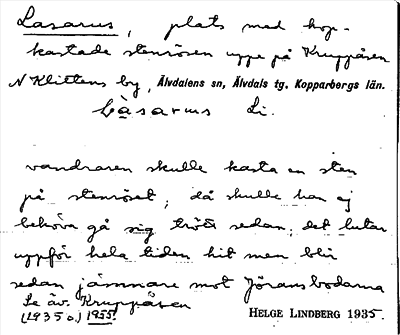 Lasarus, plats med hop-
kastade stenrösen uppe på Kruppåsen
N Klittens by, Älvdalens sn, Älvdals tg. Kopparbergs län.
Làsarus Li.
vandraren skulle kasta en sten
på stenröset, då skulle han ej
behöva gå sig trött sedan, det lutar
uppför hela tiden hit men blir
sedan jämnare mot Jöransbodarna
Se äv. Kruppåsen
(1935 o.) 1955.
HELGE LINDBERG 1935.